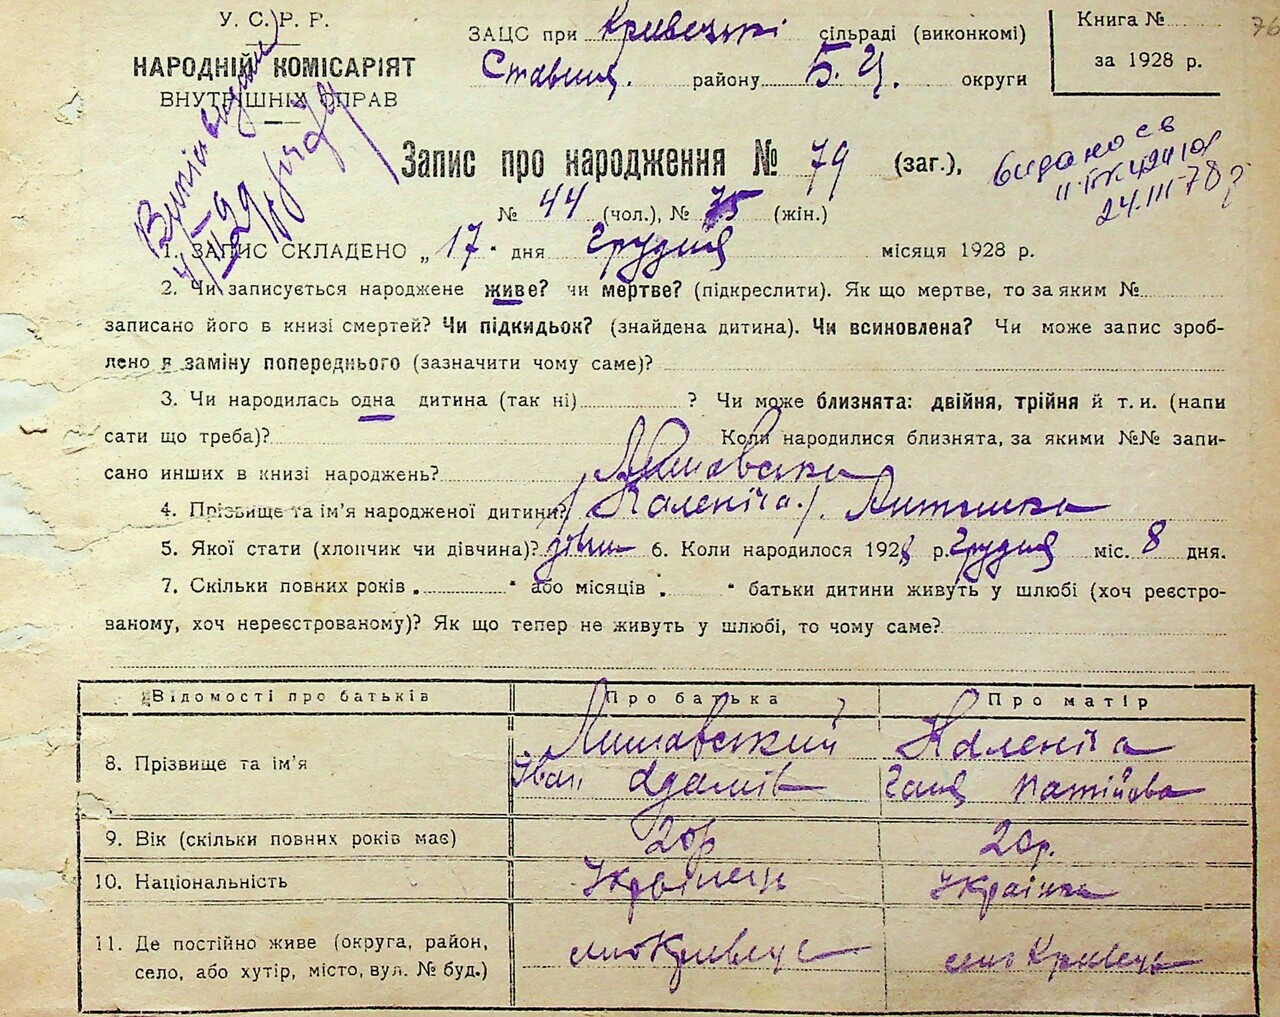 У. С. Р. Р.
НАРОДНІЙ КОМІСАРІЯТ
ВНУТРІШНІХ СПРАВ
ЗАЦС при Кривецькі сільраді (виконкомі)
Ставищ. району Б. Ц. округи
Книга №
за 1928 р.
76
Запис про народження № 79 (заг.),
№ 44 (чол.), № 35 (жін.)
видано св
24.III-78
1. ЗАПИС СКЛАДЕНО „ 17 " дня Грудня місяця 1928 р.
2. Чи записується народжене живе? чи мертве? (підкреслити). Як що мертве, то за яким №
записано його в книзі смертей? Чи підкидьок? (знайдена дитина). Чи всиновлена? Чи може запис зроб-
лено в заміну попереднього (зазначити чому саме)?
3. Чи народилась одна дитина (так ні) ? Чи може близнята: двійня, трійня й т. и. (напи
сати що треба)? Коли народилися близнята, за якими №№ запи-
сано инших в книзі народжень?
4. Прізвище та ім'я народженої дитини? (Каленіча). Антошка
5. Якої стати (хлопчик чи дівчина)? дівч 6. Коли народилося 1928 р. Грудня міс. 8 дня.
7. Скільки повних років „ " або місяців „ " батьки дитини живуть у шлюбі (хоч реєстро-
ваному, хоч нереєстрованому)? Як що тепер не живуть у шлюбі, то чому саме?
Відомості про батьків Про батька Про матір
8. Прізвище та ім'я Лишавський Каленіча
Іван Адамів Ганя Матійова
9. Вік (скільки повних років має) 20р 20р.
10. Національність Українець Українка
11. Де постійно живе (округа, район,
село, або хутір, місто, вул. № буд.) село Кривець село Кривець